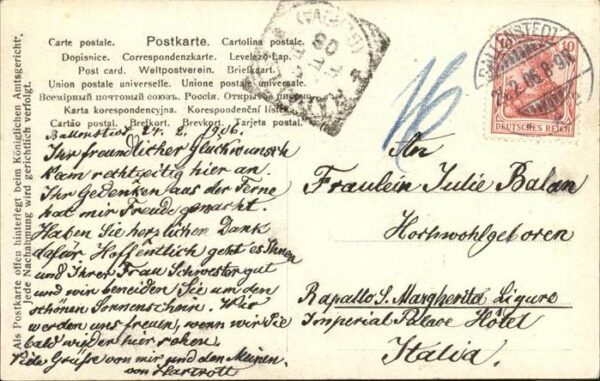 Carte postale. Postkarte. Cartolina postale.
Dopisnice. Correspondenzkarte. Levelező-Lap.
Post card. Weltpostverein. Briefkaart.
Union postale universelle. Unione postale universale.
Всемірный почтовый союзъ. Россія. Открытое письмо.
Karta korespondencyjna. Korespondenční lístek.
Cartão postal. Brefkort. Brevkort. Tarjeta postal.
Als Postkarte offen hinterlegt beim Königlichen Amtsgericht,
Jede Nachahmung wird gerichtlich verfolgt.
Ballenstedt 24. 2. 1906.
Ihr freundlicher Glückwunsch
kam rechtzeitig hier an.
Ihr Gedenken aus der Ferne
hat mir Freude gemacht.
Haben Sie herzlichen Dank
dafür. Hoffentlich geht es Ihnen
und Ihrer Frau Schwester gut
und wir beneiden Sie um den
schönen Sonnenschein. Wir
werden uns freuen, wenn wir Sie
bald wieder hier sehen.
Viele Grüße von mir und den Meinen.
von Hartrott
16
10
DEUTSCHES REICH
BALLENSTEDT
2.06. 8-9
An
Fraulein Julie Balan
Hochwohlgeboren
Rapallo S. Margherita Ligure
Imperial Palace Hôtel
Italia.